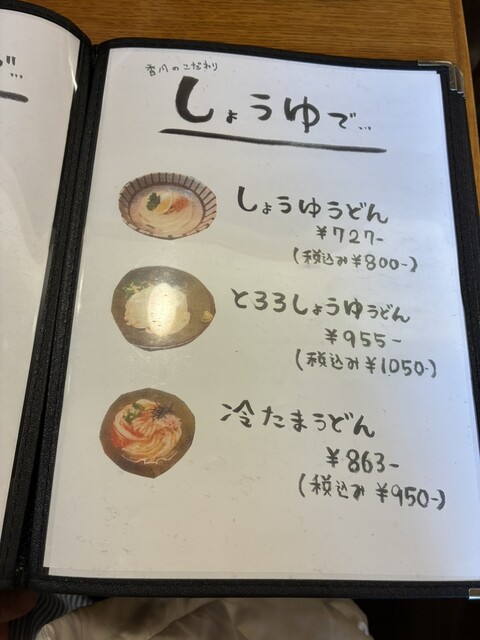 で…
香川のこだわり
しょうゆで…
しょうゆうどん
¥727-
(税込み¥800-)
とろろしょうゆうどん
¥955-
(税込み¥1050-)
冷たまうどん
¥863-
(税込み ¥950-)